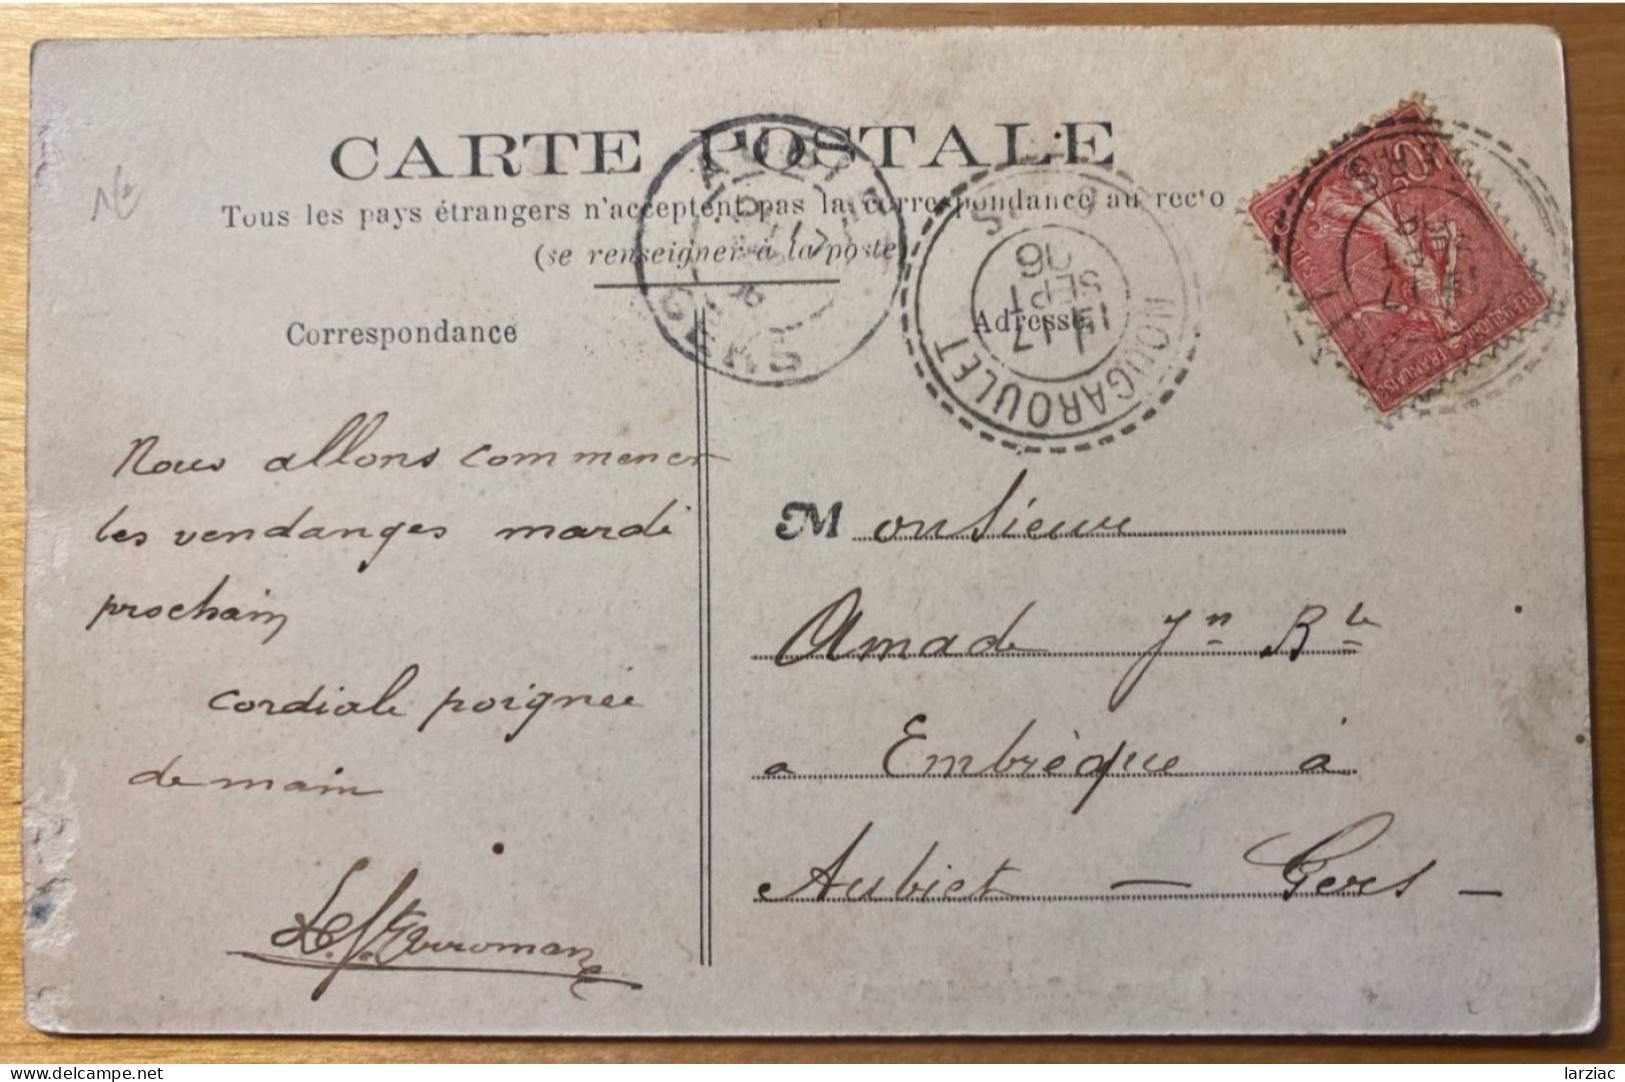 CARTE POSTALE
Tous les pays étrangers n'acceptent pas la correspondance au recto
(se renseigner à la poste)
Correspondance
Adresse
NOUGAROULET
17
15
SEPT
06
GERS
10
Nous allons commencer
les vendanges mardi
prochain
cordiale poignée
de main
Monsieur
Amade Jn Bte
a Embrèque à
Aubiet — Gers —
larziac